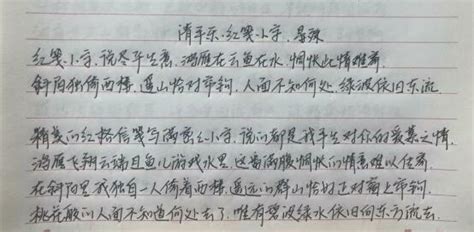 清平乐·红笺小字 晏殊
红笺小字,说尽平生意,鸿雁在云鱼在水,惆怅此情难寄。
斜阳独倚西楼,遥山恰对帘钩,人面不知何处,绿波依旧东流。
精美的红格信笺写满密密小字,说的都是我平生对你的爱慕之情,
鸿雁飞翔云端鱼儿游戏水里,这番满腹惆怅的情意难以传寄。
在斜阳里我独自一人倚着西楼,遥远的群山恰好正对窗上帘钩,
桃花般的人面不知道何处去了,唯有碧波绿水依旧向东方流去。